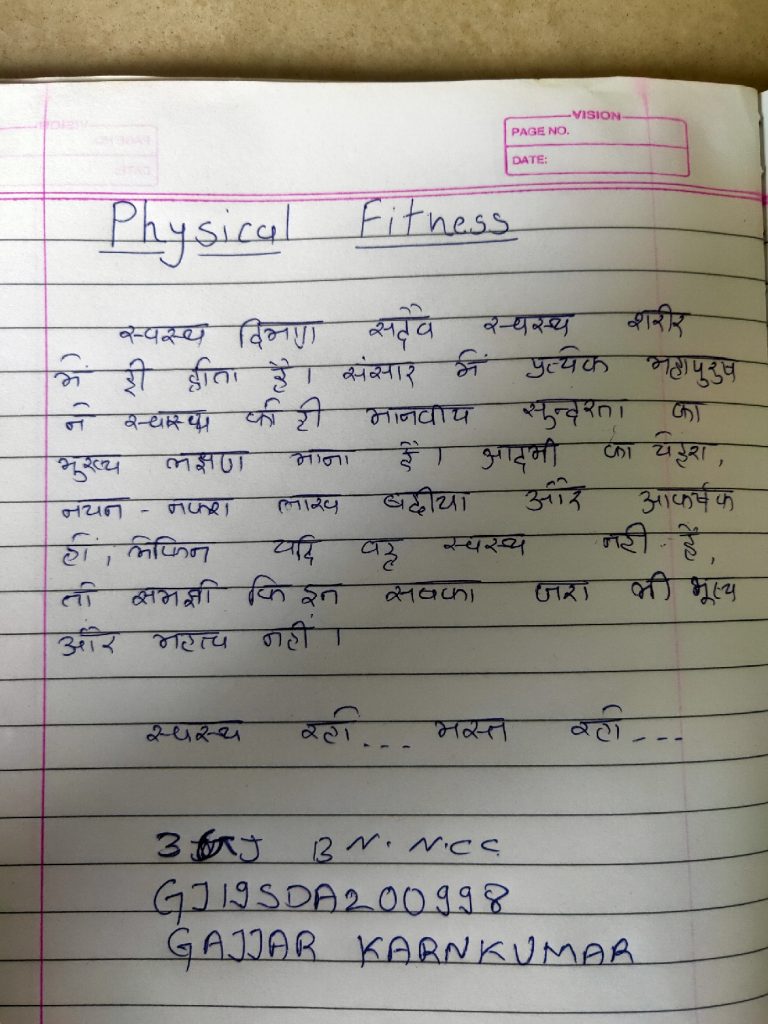 VISION
PAGE NO.
DATE:
Physical Fitness
स्वस्थ दिमाग सदैव स्वस्थ शरीर
में ही होता है। संसार में प्रत्येक महापुरुष
ने स्वास्थ्य को ही मानवीय सुन्दरता का
मुख्य लक्षण माना है। आदमी का चेहरा,
नयन - नक्श लाख बढ़ीया और आकर्षक
हों, लेकिन यदि वह स्वस्थ नही है,
तो समझो कि इन सबका जरा भी मूल्य
और महत्व नहीं।
स्वस्थ रहो... मस्त रहो---
BN. N.C.C
GJ19SDA200998
GAJJAR KARNKUMAR